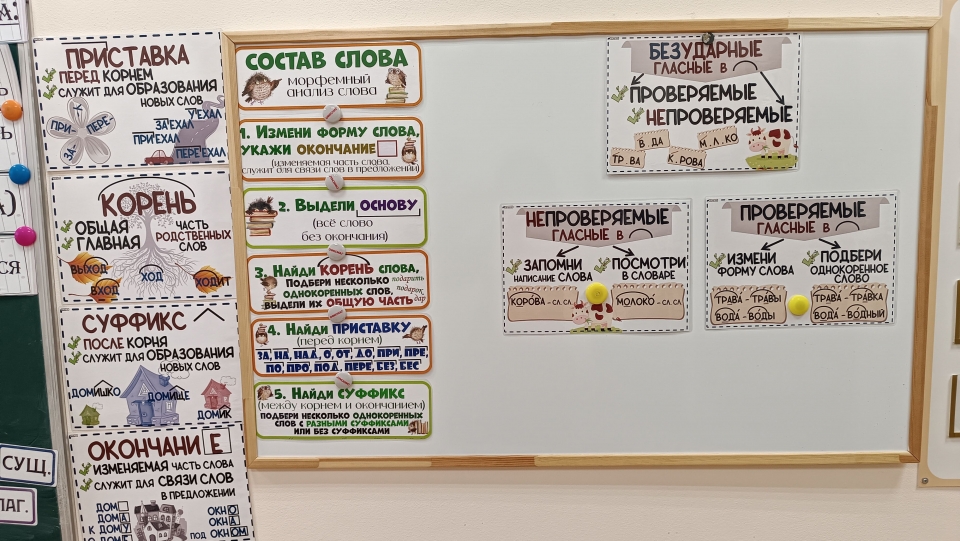 ПРИСТАВКА
ПЕРЕД КОРНЕМ
СЛУЖИТ ДЛЯ ОБРАЗОВАНИЯ
НОВЫХ СЛОВ
У-
ПРИ-
ПЕРЕ-
ЗА-
УЕХАЛ
ЗАЕХАЛ
ПРИЕХАЛ
ПЕРЕЕХАЛ
КОРЕНЬ
ОБЩАЯ
ГЛАВНАЯ
ЧАСТЬ
РОДСТВЕННЫХ
СЛОВ
ВЫХОД
ХОД
ВХОД
ХОДИТ
СУФФИКС
ПОСЛЕ КОРНЯ
СЛУЖИТ ДЛЯ ОБРАЗОВАНИЯ
НОВЫХ СЛОВ
ДОМИШКО
ДОМИЩЕ
ДОМИК
ОКОНЧАНИЕ
ИЗМЕНЯЕМАЯ ЧАСТЬ СЛОВА
СЛУЖИТ ДЛЯ СВЯЗИ СЛОВ
В ПРЕДЛОЖЕНИИ
ДОМ
ДОМА
К ДОМУ
ОКНО
ОКНА
ПОД ОКНОМ
СУЩ.
СОСТАВ СЛОВА
морфемный
анализ слова
1. Измени форму слова,
укажи окончание
(изменяемая часть слова,
служит для связи слов в предложении)
2. Выдели основу
(всё слово
без окончания)
3. Найди корень слова,
подбери несколько
однокоренных слов,
выдели их общую часть
подарить
подарок
дар
4. Найди приставку
(перед корнем)
ЗА, НА, НАД, О, ОТ, ДО, ПРИ, ПРЕ,
ПО, ПРО, ПОД, ПЕРЕ, БЕЗ, БЕС
5. Найди суффикс
(между корнем и окончанием)
подбери несколько однокоренных
слов с разными суффиксами
или без суффиксов
БЕЗУДАРНЫЕ
ГЛАСНЫЕ В
ПРОВЕРЯЕМЫЕ
НЕПРОВЕРЯЕМЫЕ
В.ДА
М.Л.КО
ТР.ВА
К.РОВА
НЕПРОВЕРЯЕМЫЕ
ГЛАСНЫЕ В
ЗАПОМНИ
НАПИСАНИЕ СЛОВА
ПОСМОТРИ
В СЛОВАРЕ
КОРОВА - СЛ. СЛ.
МОЛОКО - СЛ. СЛ
ПРОВЕРЯЕМЫЕ
ГЛАСНЫЕ В
ИЗМЕНИ
ФОРМУ СЛОВА
ПОДБЕРИ
ОДНОКОРЕННОЕ
СЛОВО
ТРАВА - ТРАВЫ
ВОДА - ВОДЫ
ТРАВА - ТРАВКА
ВОДА - ВОДНЫЙ